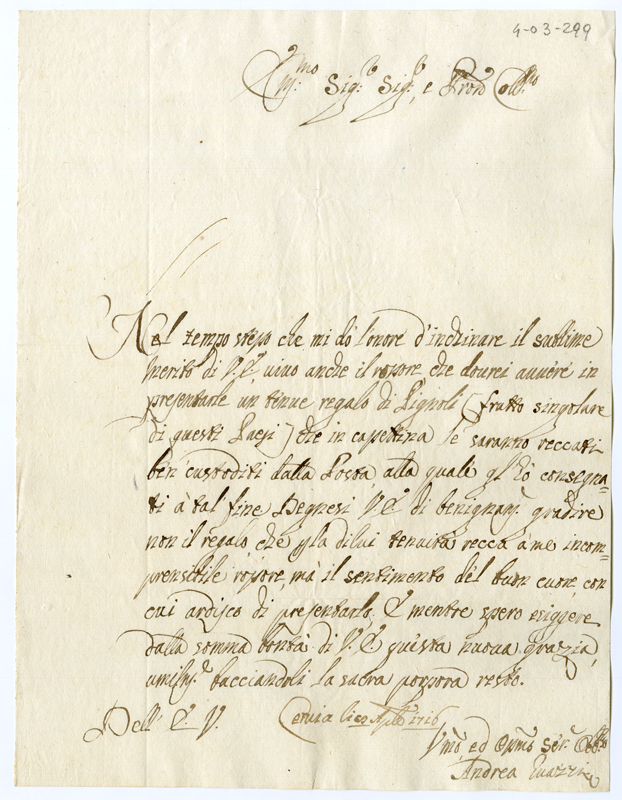 4-03-299
Em:mo Sig:r Sig:r, e Pron Coll:mo
Nel tempo stesso che mi dò l'onore d'inchinare il sublime
Merito di V. E., vivo anche il rossore che dourei auuere in
presentarle un tenue regalo di Pignoli (frutto singolare
di questi Paesi) che in cassettina le saranno reccati
ben custoditi dalla Posta, alla quale gl'hò consegna=
ti à tal fine Degnesi V. E. di benignam: gradire
non il regalo, che p la di lui tenuità recca à me incom=
prensibile rossore, mà il sentimento del buon cuore, con
cui ardisco di presentarlo, E mentre spero esiggere
dalla somma bontà di V. E. questa nuova grazia,
umilm:e bacciandoli la sacra porpora resto.
Dell' E. V. Cervia li 1716
Vmo ed Oblmo Ser:
Andrea